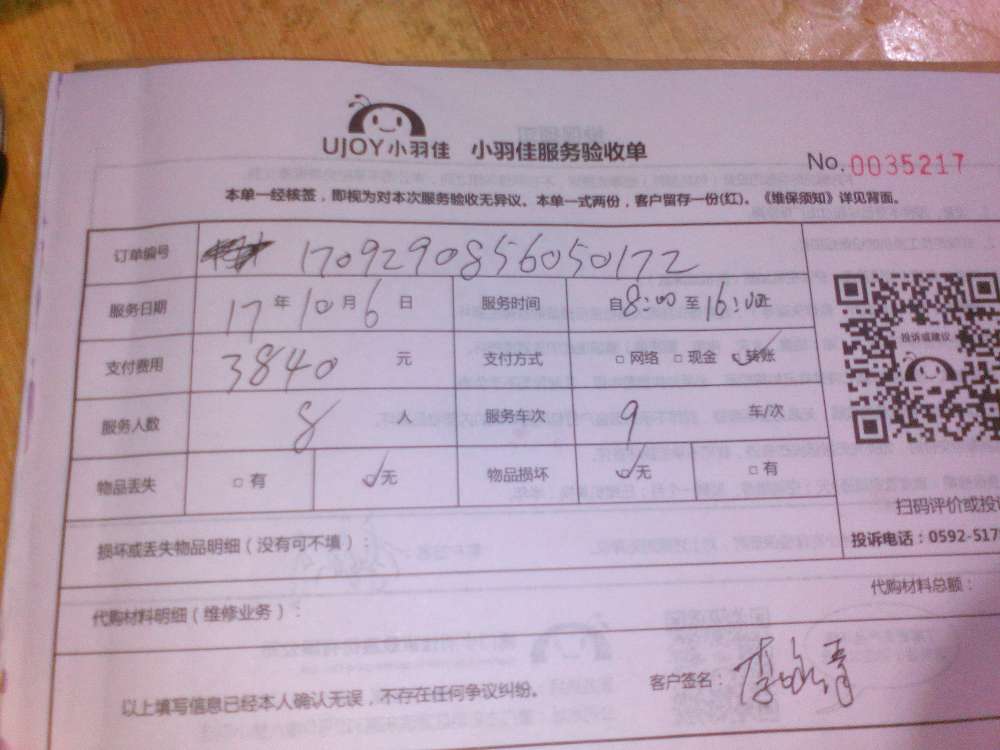 UJOY小羽佳 小羽佳服务验收单
No.0035217
本单一经核签，即视为对本次服务验收无异议。本单一式两份，客户留存一份(红)。《维保须知》详见背面。
订单编号 1709290856050172
服务日期 17年10月6日 服务时间 自8:00至16:00止
支付费用 3840 元 支付方式 □网络 □现金 ☑转账
服务人数 8 人 服务车次 9 车/次
物品丢失 □有 ☑无 物品损坏 ☑无 □有
投诉或建议
扫码评价或投
投诉电话：0592-517
损坏或丢失物品明细（没有可不填）：
代购材料明细（维修业务）：
代购材料总额：
以上填写信息已经本人确认无误，不存在任何争议纠纷。
客户签名：李咏青